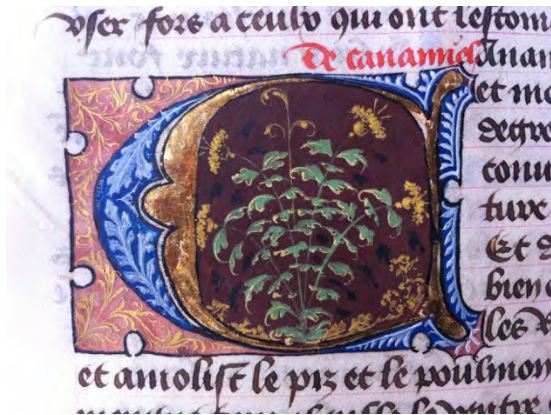 user fors a ceulx qui ont lestom
De canamiel Anam
et mo
degre
conu
ture
Et d
bien c
les
et amolist le piz et le poulmon